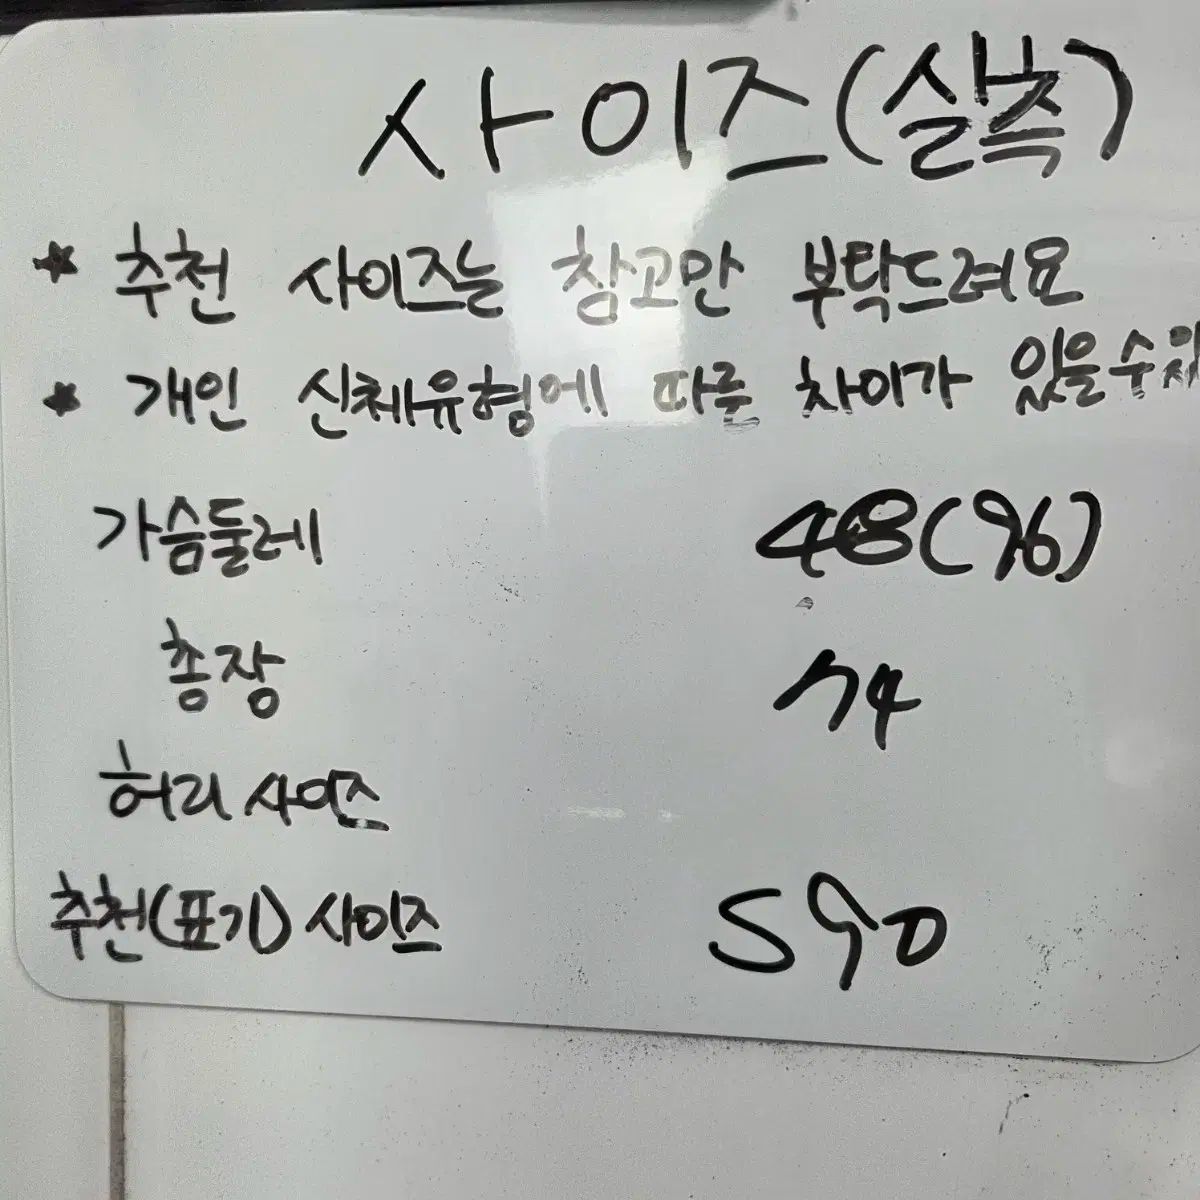 사이즈(실측)
* 추천 사이즈는 참고만 부탁드려요
* 개인 신체유형에 따른 차이가 있을수
가슴둘레 48(96)
총장 74
허리 사이즈
추천(표기) 사이즈 S90